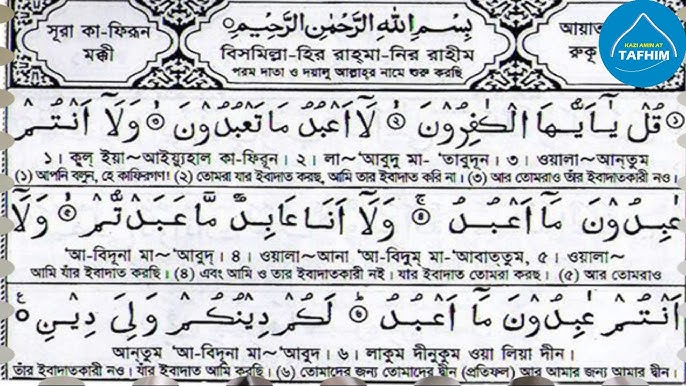 সূরা কা-ফিরূন
মক্কী
بِسْمِ اللهِ الرَّحْمٰنِ الرَّحِيْمِ
বিসমিল্লা-হির রাহ্‌মা-নির রাহীম
পরম দাতা ও দয়ালু আল্লাহর নামে শুরু করছি
আয়াত
রুকূ
KAZI AMIN AT
TAFHIM
قُلْ يٰٓاَيُّهَا الْكٰفِرُوْنَ ۙ﴿۱﴾ لَآ اَعْبُدُ مَا تَعْبُدُوْنَ ۙ﴿۲﴾ وَلَآ اَنْتُمْ
১। কুল্ ইয়া~আইয়্যুহাল কা-ফিরূন। ২। লা~ 'আবুদু মা- 'তাবুদূন। ৩। ওয়ালা~আন্‌তুম
(১) আপনি বলুন, হে কাফিরগণ! (২) তোমরা যার ইবাদাত করছ, আমি তার ইবাদাত করি না। (৩) আর তোমরাও তাঁর ইবাদাতকারী নও।
عٰبِدُوْنَ مَآ اَعْبُدُ ۚ وَلَآ اَنَا عَابِدٌ مَّا عَبَدْتُّمْ ۙ وَلَآ
'আ-বিদূনা মা~ 'আবুদ্। ৪। ওয়ালা~আনা 'আ-বিদুম্ মা-'আবাত্তুম, ৫। ওয়ালা~
আমি যাঁর ইবাদাত করছি। (৪) এবং আমি ও তার ইবাদাতকারী নই। যার ইবাদাত তোমরা করছ। (৫) আর তোমরাও
اَنْتُمْ عٰبِدُوْنَ مَآ اَعْبُدُ ۗ لَكُمْ دِيْنُكُمْ وَلِيَ دِيْنِ
আন্‌তুম 'আ-বিদূনা মা~ 'আবুদ। ৬। লাকুম দীনুকুম ওয়া লিয়া দীন।
তাঁর ইবাদাতকারী নও। যাঁর ইবাদাত আমি করছি। (৬) তোমাদের জন্য তোমাদের দ্বীন (প্রতিফল) আর আমার জন্য আমার দ্বীন।